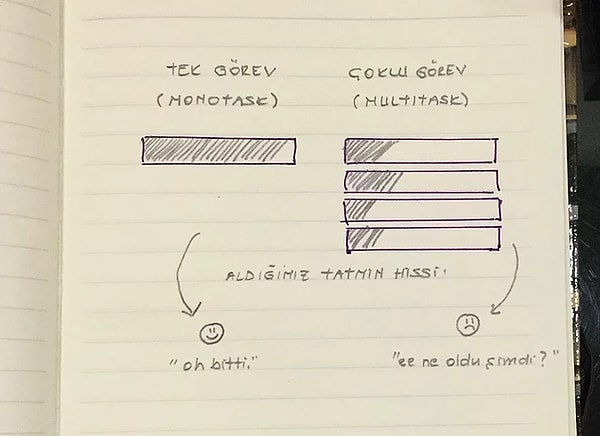 TEK GÖREV
(MONOTASK)
ÇOKLU GÖREV
(MULTITASK)
ALDIĞIMIZ TATMİN HİSSİ:
"oh bitti."
"ee ne oldu şimdi?"